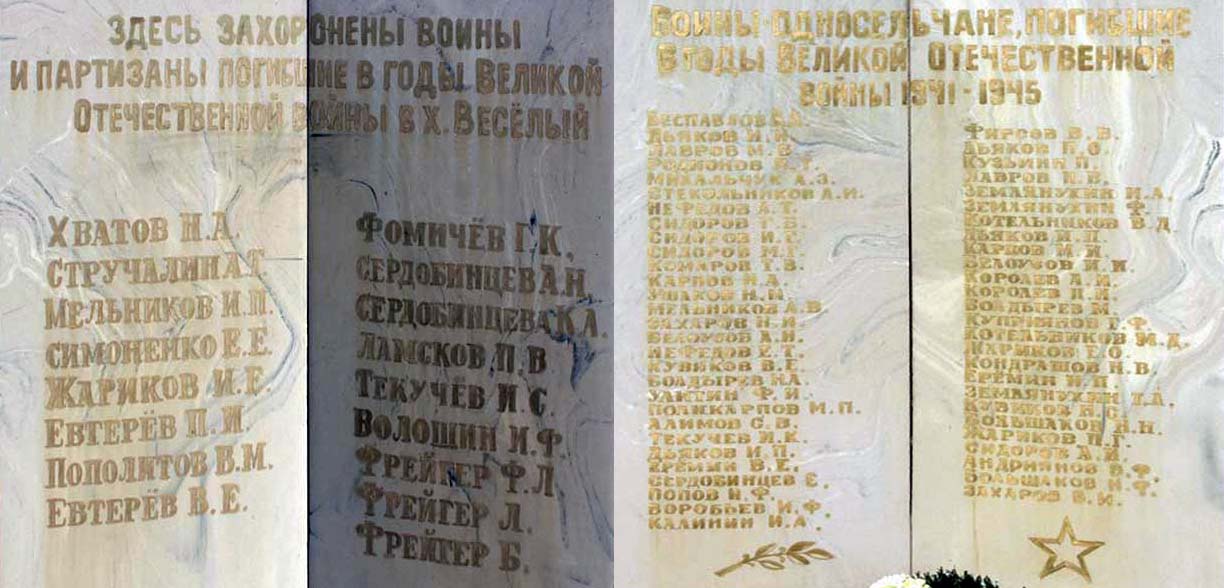 ЗДЕСЬ ЗАХОРОНЕНЫ ВОИНЫ
И ПАРТИЗАНЫ ПОГИБШИЕ В ГОДЫ ВЕЛИКОЙ
ОТЕЧЕСТВЕННОЙ ВОЙНЫ В Х. ВЕСЁЛЫЙ
ХВАТОВ Н.А.
СТРУЧАЛИН А.Т.
МЕЛЬНИКОВ И.П.
СИМОНЕНКО Е.Е.
ЖАРИКОВ И.Е.
ЕВТЕРЁВ П.И.
ПОПОЛИТОВ В.М.
ЕВТЕРЁВ В.Е.
ФОМИЧЁВ Г.К.
СЕРДОБИНЦЕВ А.Н.
СЕРДОБИНЦЕВА К.А.
ЛАМСКОВ П.В
ТЕКУЧЕВ И.С.
ВОЛОШИН И.Ф.
ФРЕЙГЕР Ф.Л
ФРЕЙГЕР Л.
ФРЕЙГЕР Б.
ВОИНЫ-ОДНОСЕЛЬЧАНЕ, ПОГИБШИЕ
В ГОДЫ ВЕЛИКОЙ ОТЕЧЕСТВЕННОЙ
ВОЙНЫ 1941-1945
ДЬЯКОВ И.И.
ЛАВРОВ М.В.
РОДИОНОВ
МИХАЛЬЧУК А.З.
СТЕКОЛЬНИКОВ А.И.
НЕФЕДОВ А.Т.
СИДОРОВ
СИДОРОВ И.С.
СИДОРОВ М.
КОМАРОВ
КАРПОВ Н.А.
УШАКОВ Н.Н.
МЕЛЬНИКОВ А.В
ЗАХАРОВ Н.И.
БЕЛОУСОВ А.И.
НЕФЕДОВ Е.Т.
КУВИКОВ В.Е.
БОЛДЫРЕВ
УЛИТИН Ф.И.
ПОЛИКАРПОВ М.П.
АЛИМОВ С.В.
ТЕКУЧЕВ И.К.
ДЬЯКОВ И.П.
ЕРЕМИН В.Е.
СЕРДОБИНЦЕВ Е.
ПОПОВ Н.Ф.
ВОРОБЬЕВ И.Ф.
КАЛИНИН И.А.
ФИРСОВ В.В.
ДЬЯКОВ П.О.
КУЗЬМИН П.
ЛАВРОВ П.В.
ЗЕМЛЯНУХИН И.А.
ЗЕМЛЯНУХИН Ф.
КОТЕЛЬНИКОВ В.Д.
ДЬЯКОВ
БЕЛОУСОВ И.И.
КОРОЛЕВ А.И.
КОРОЛЕВ П.И.
БОЛДЫРЕВ
КУПРИЯНОВ Т.Ф.
КОТЕЛЬНИКОВ М.Д.
ЖАРИКОВ Е.О.
КОНДРАШОВ Н.В.
ЕРЕМИН И.П.
ЗЕМЛЯНУХИН Т.А.
БОЛЬШАКОВ А.Н.
ЖАРИКОВ П.Г.
СИДОРОВ А.И.
АНДРИЯНОВ В.Ф.
БОЛЬШАКОВ Н.Ф.
ЗАХАРОВ В.И.